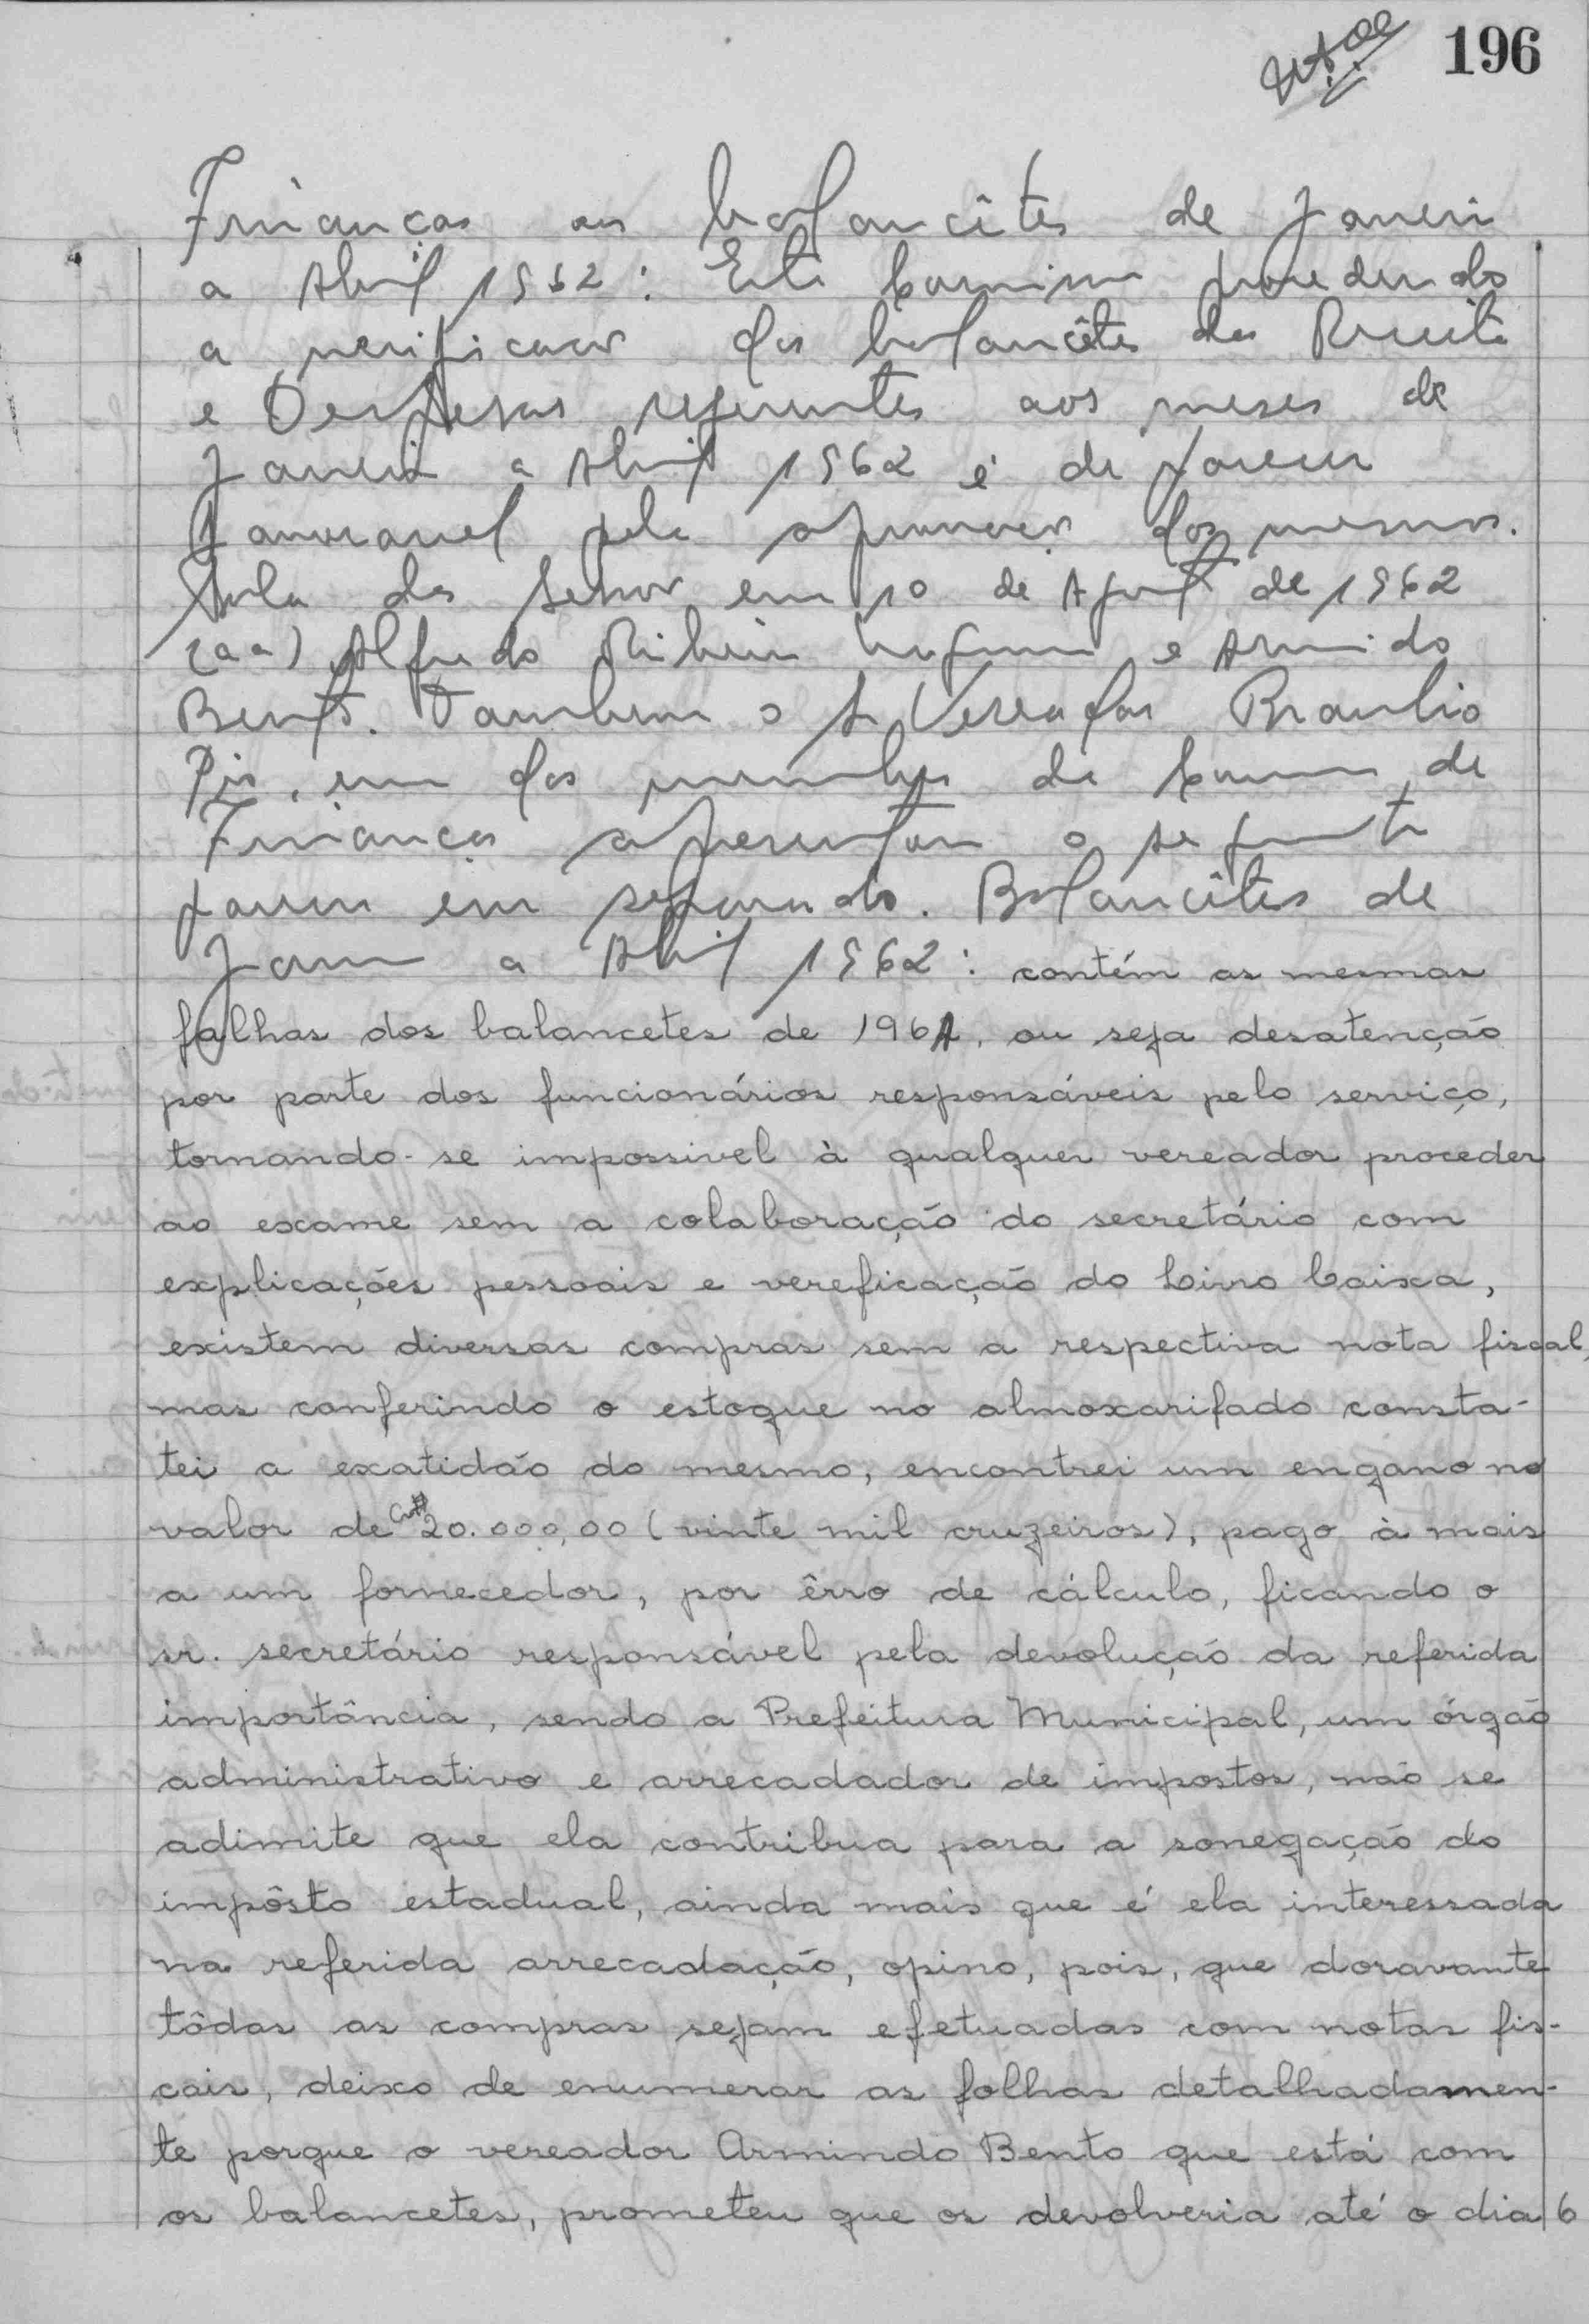 196
Finanças aos balancêtes de Janeiro
a Abril 1962: Esta Comissão procedendo
a verificação dos balancêtes da Receita
e Despesas referentes aos meses de
Janeiro a Abril 1962 é de parecer
favoravel pela aprovação dos mesmos.
Sala das Sessões em 10 de Agosto de 1962
(aa) Alfredo Ribeiro e Armindo
Bento. Tambem o Sr Vereador Braulio
Pio, um dos membros da Comissão de
Finanças apresentou o seguinte
parecer em separado. Balancêtes de
Janeiro a Abril 1962: contém as mesmas
falhas dos balancetes de 1961, ou seja desatenção
por parte dos funcionários responsáveis pelo serviço,
tornando-se impossivel à qualquer vereador proceder
ao exame sem a colaboração do secretário com
explicações pessoais e vereficação do Livro Caixa,
existem diversas compras sem a respectiva nota fiscal,
mas conferindo o estoque no almoxarifado consta-
tei a exatidão do mesmo, encontrei um engano no
valor de Cr$ 20.000,00 (vinte mil cruzeiros), pago à mais
a um fornecedor, por êrro de cálculo, ficando o
sr. secretário responsável pela devolução da referida
importância, sendo a Prefeitura Municipal, um órgão
administrativo e arrecadador de impostos, não se
adimite que ela contribua para a sonegação do
impôsto estadual, ainda mais que é ela interessada
na referida arrecadação, opino, pois, que doravante
tôdas as compras sejam efetuadas com notas fis-
cais, deixo de enumerar as folhas detalhadamen-
te porque o vereador Armindo Bento que está com
os balancetes, prometeu que os devolveria até o dia 6